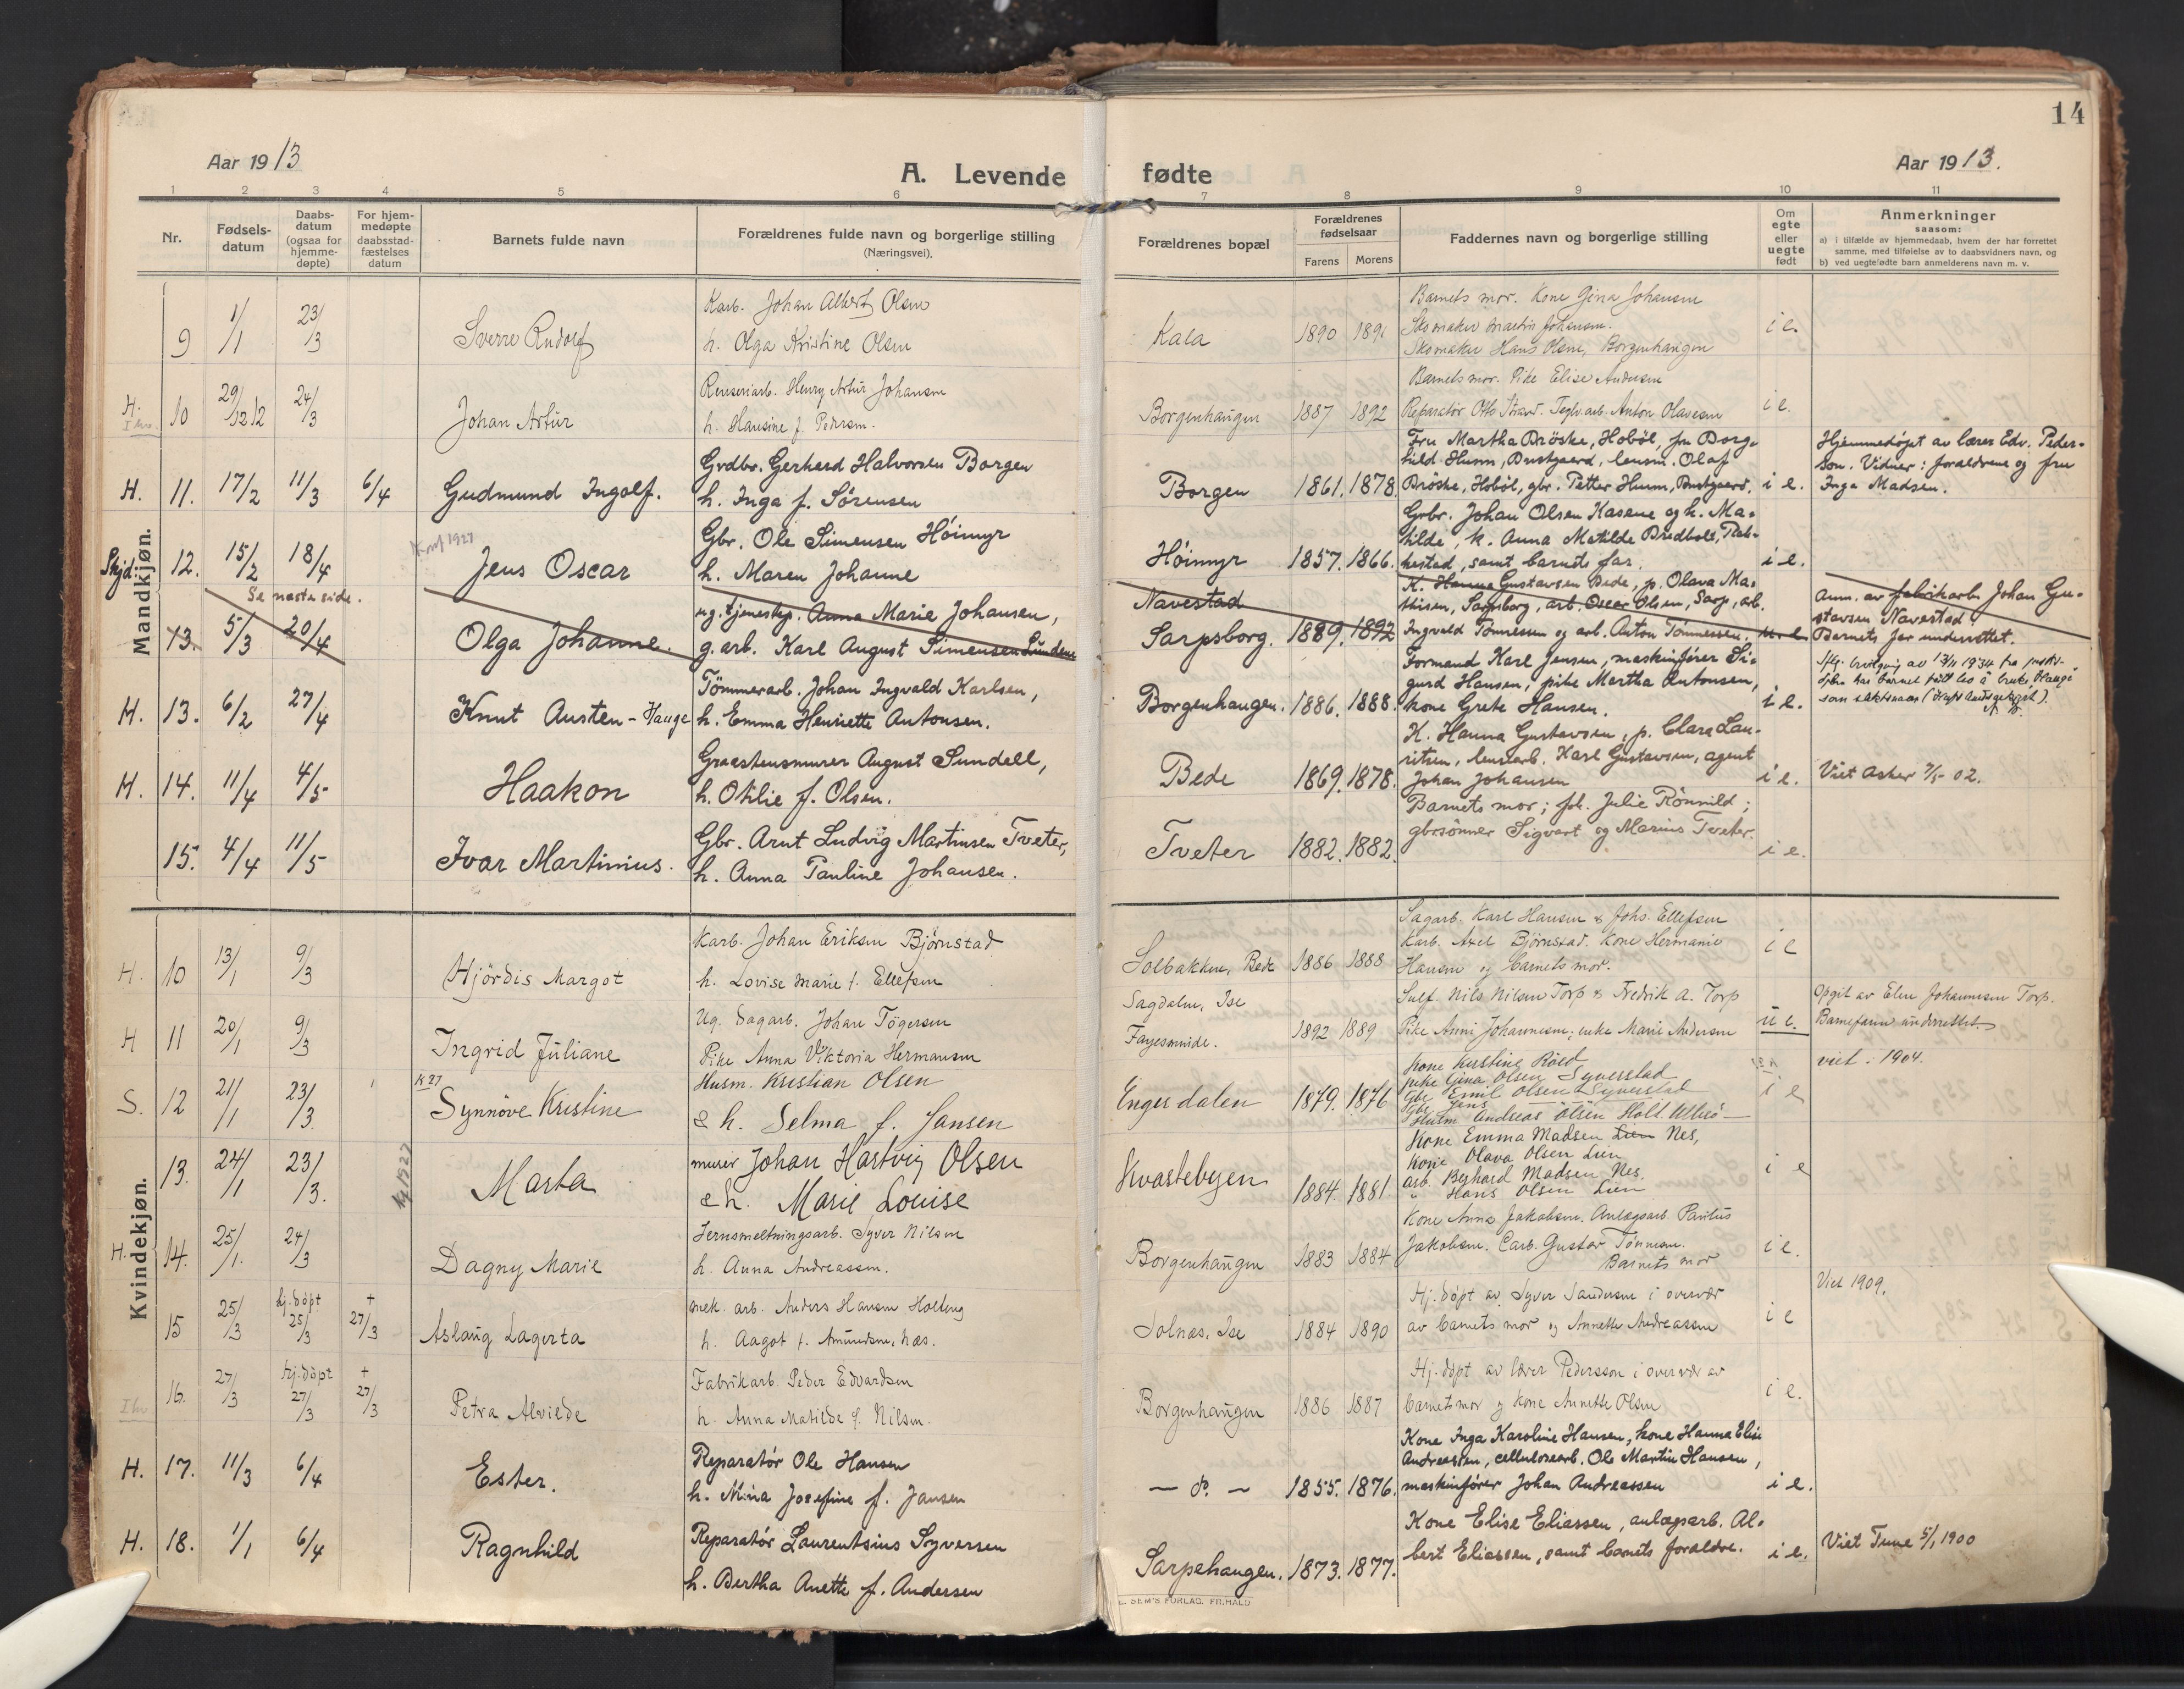 14
Aar 1913
A. Levende fødte
Aar 1913.
1 2 3 4 5 6 7 8 9 10 11
Nr.
Fødsels-
datum
Daabs-
datum
(ogsaa for
hjemme-
døpte)
For hjem-
medøpte
daabsstad-
fæstelses
datum
Barnets fulde navn
Forældrenes fulde navn og borgerlige stilling
(Næringsvei).
Forældrenes bopæl
Forældrenes
fødselsaar
Farens Morens
Faddernes navn og borgerlige stilling
Om
egte
eller
uegte
født
Anmerkninger
saasom:
a) i tilfælde av hjemmedaab, hvem der har forrettet
samme, med tilføielse av to daabsvidners navn, og
b) ved uegte fødte barn anmelderens navn m. v.
Mandkjøn.
9 1/1 23/3 Sverre Rudolf
Karb. Johan Albert Olsen
h. Olga Kristine Olsen
Kala 1890 1891
Barnets mor. Kone Gina Johansen
Skomaker Martin Johansen.
Skomaker Hans Olsen, Borgenhaugen
i e.
H. 10 29/12 12 24/3 Johan Artur
Renseriarb. Henry Artur Johansen
h. Hansine f. Pedersen.
Borgenhaugen 1887 1892
Barnets mor. Pike Elise Andersen
Reparatør Otto Strand. Teglv.arb. Anton Olavesen
i e.
H. 11. 17/2 11/3 6/4 Gudmund Ingolf.
Grdbr. Gerhard Halvorsen Borgen
h. Inga f. Sörensen
Borgen 1861. 1878.
Fru Martha Bröske, Hoböl, fru Borg-
hild Hunn, Bustgaard, lensm. Olaf
Bröske, Hoböl, gbr. Petter Hunn, Bustgaard.
i e.
Hjemmedöpt av lærer Edv. Peder-
son. Vidner: forældrene og fru
Inga Madsen.
Skjd. 12. 15/2 18/4 Jens Oscar
Konf 1927
Gbr. Ole Simensen Höimyr
h. Maren Johanne
Höimyr 1857. 1866.
Grbr. Johan Olsen Kasene og h. Ma-
thilde, k. Anna Matilde Bredholt, Rak-
kestad, samt barnets far.
i e.
Se næste side.
13. 5/3 20/4 Olga Johanne.
ug. tjenestep. Anna Marie Johansen,
g. arb. Karl August Simensen Linden
Navestad
Sarpsborg. 1889. 1892
K. Hanna Gustavsen Bede, p. Olava Ma-
thisen, Sarpsborg, arb. Oscar Olsen, Sarp, arb.
Ingvald Tönnessen og arb. Anton Tönnessen.
u e
Anm. av fabrikarb. Johan Gu-
stavsen Navestad
Barnets far underrettet.
H. 13. 6/2 27/4 Knut Austen - Hauge
Tömmerarb. Johan Ingvald Karlsen,
h. Emma Henriette Antonsen.
Borgenhaugen. 1886. 1888.
Formand Karl Jensen, maskinförer Si-
gurd Hansen, pike Martha Antonsen,
kone Grete Hansen.
i e.
H. 14. 11/4 4/5 Haakon
Graastensmurer August Sundell,
h. Otilie f. Olsen.
Bede 1869. 1878.
K. Hanna Gustavsen, p. Clara Lau-
ritsen, lensearb. Karl Gustavsen, agent
Johan Johansen
i e.
Viet Asker 7/5 02.
15. 4/4 11/5 Ivar Martinius.
Gbr. Arnt Ludvig Martinsen Tveter,
h. Anna Pauline Johansen.
Tveter 1882. 1882.
Barnets mor; frk. Julie Rönnild;
gbrsönner Sigvart og Marius Tveter.
i e.
Kvindekjøn.
H. 10 13/1 9/3 Hjördis Margot
Karb. Johan Eriksen Björnstad
h. Lovise Marie f. Ellefsen
Solbakken, Bede 1886 1888
Sagarb. Karl Hansen & Johs. Ellefsen
Karb. Axel Björnstad. Kone Hermanie
Hansen og barnets mor.
i e
H 11 20/1 9/3 Ingrid Juliane
Ug. Sagarb. Johan Tögersen
Pike Anna Viktoria Hermansen
Sagdalen, Ise
1892 1889
Sulf. Nils Nilsen Torp & Fredrik A. Torp
Pike Anni Johannesen; enke Marie Andersen
u e.
Opgit av Elen Johannesen Torp.
Barnefaren underrettet.
S. 12 21/1 23/3 Synnöve Kristine
K 27
Husm. Kristian Olsen
& h. Selma f. Jansen
Engerdalen 1879. 1876
Kone Kristine Röed
pike Gina Olsen Syverstad
Gbr. Emil Olsen Syverstad
i e
viet. 1904.
13. 24/1 23/3. Marta
Kf 1927
murer Johan Hartvig Olsen
& h. Marie Louise
Kvastebyen 1884. 1881
Kone Emma Madsen Lien Nes,
Kone Olava Olsen Lien
arb. Berhard Madsen Nes.
" Hans Olsen Lien
i e
H. 14. 25/1. 24/3 Dagny Marie
Jernsmeltningsarb. Syver Nilsen
h. Anna Andreassen.
Borgenhaugen 1883 1884
Kone Anna Jakobsen. Anlægsarb. Paulus
Jakobsen. Carb. Gustav Tönnesen.
Barnets mor
i e.
15 25/3 hj. döpt 25/3 + 27/3 Aslaug Lagerta
mek. arb. Anders Hansen Holteng
h. Aagot f. Amundsen, Næs.
Solnæs, Ise 1884 1890
Hj. döpt av Syver Sandersen i overvær
av barnets mor og Annette Andreassen
i e
Viet 1909.
16. 27/3 hj. döpt 27/3 + 27/3 Petra Alvilde
Fabrikarb. Peder Edvardsen
h. Anna Matilde f. Nilsen.
Borgenhaugen 1886 1887
Hj. döpt av lærer Pedersson i overvær av
barnets mor og kone Annette Olsen
i e.
H. 17. 11/3 6/4 Ester.
Reparatör Ole Hansen
h. Mina Josefine f. Jansen
— do. — 1855. 1876.
Kone Inga Karoline Hansen, kone Hanna Elise
Andreassen, cellulosearb. Ole Martin Hansen,
maskinförer Johan Andreassen
i e.
H. 18. 1/1 6/4 Ragnhild
Reparatör Laurentsius Syversen
h. Bertha Anette f. Andersen
Sarpehaugen. 1873. 1877.
Kone Elise Eliassen, anlægsarb. Al-
bert Eliassen, samt barnets forældre.
i e.
Viet Tune 5/1 1900
E. SEM'S FORLAG, FR.HALD